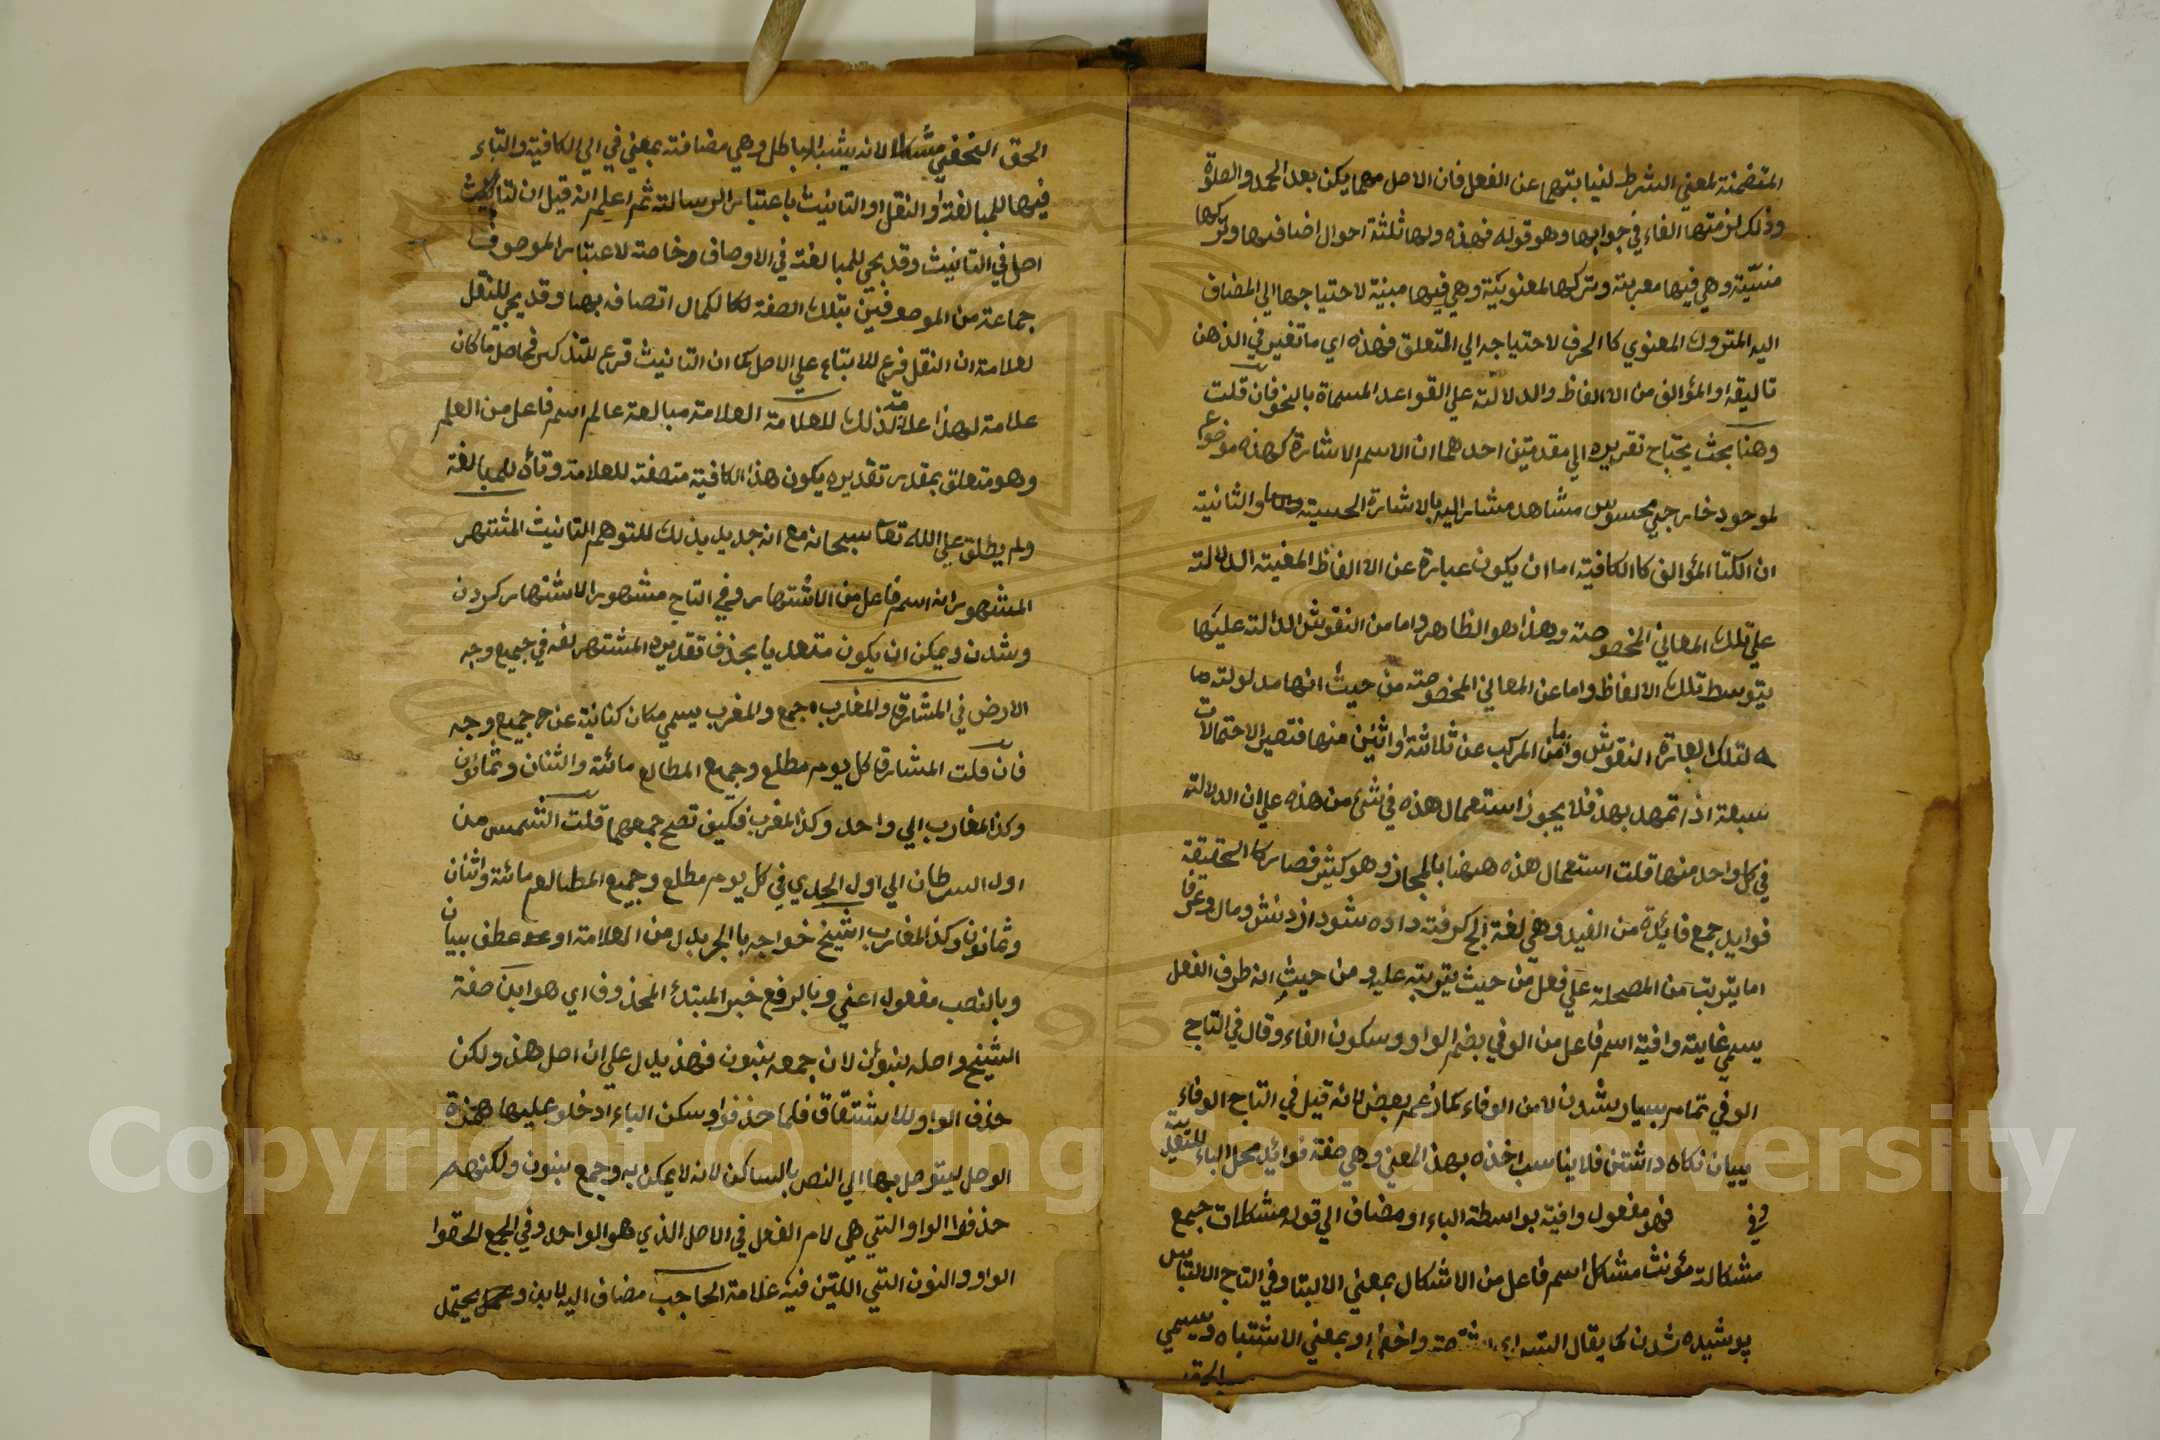 المتضمنة لمعني الشرط لنيابتهما عن الفعل فان الاصل مهما يكن بعد الحمد والصلوة
وذلك لزمتها الفاء في جوابها وهو قوله فهذه ولها ثلثة احوال اضافتها وتركها
منسيّة وهي فيها معربة وتركها لمعنوية وهي فيها مبنية لاحتياجها الي المضاف
اليه المتروك المعنوي كالحرف لاحتياجه الي المتعلق فهذه اي ما تغير في الذهن
تاليفه او المؤالف من الالفاظ والدلالة علي القواعد المسماة بالنحو فان قلت
وهنا بحث يحتاج تقريره الي مقدمتين احدهما ان الاسم الاشارة كهذه موضوع
لموجود خارجي محسوس مشاهد مشار اليه بالاشارة الحسية والثانية
ان الكتا المؤالف كالكافية اما ان يكون عبارة عن الالفاظ المغينة الدلالة
علي تلك المعاني المخصوصة وهذا هو الظاهر واما من النقوش الدالة عليها
بتوسط تلك الالفاظ واما عن المعاني المخصوصة من حيث انها مدلولة ما
لتلك العبارة النقوش واما من المركب عن ثلاثة او اثنين منها فتصير الاحتمالات
سبعة اذا تمهد بهذ فلا يجوز استعمال هذه في شئ من هذه علي ان الدلالة
في كل واحد منها قلت استعمال هذه ههنا بالمجاز وهو كثير فصار كالحقيقة
فوايد جمع فائدة من الفيد وهي لغة انچه گرفته داده شود از دنش ومال وعرفا
اما يتربت من المصحلة علي فعل من حيث يتربته عليه ومن حيث انه طرف الفعل
يسمي غاية وافية اسم فاعل من الوفي بضم الواو وسكون الفاء وقال في التاج
الوفي تمام بسيار شدن لا من الوفاء كما زعم بعض لانه قيل في التاج الوفاء
پيمان نكاه داشتن فلا يناسب اخذه بهذ المعني وهي صفة فوائد محل الباء للتعدية
وفي فهو مفعول وافية بواسطة الباء او مضاف الي قوله مشكلات جمع
مشكلة مؤنث مشكل اسم فاعل من الاشكال بمعني الالبتا وفي التاج الالتباس
پوشيده شدن كما يقال التبه اي واخفي او بمعني الاشتباه ويسمي
الحق
الحق الخفي مشكلا لانه يشبه الباطل وهي مضافة بمعني في الي الكافية والتاء
فيها للمبالغة او النقل او التانيث باعتبار الرسالة ثم اعلم انه قيل ان لتانيث
اصل في التانيث وقد يجي للمبالغة في الاوصاف وخاصة لاعتبار الموصوف
جماعة من الموصوفين بتلك الصفة لكا لكمال اتصافه بها وقد يجي للنقل
لعلامة ان النقل فرع للابتاء علي الاصل كما ان التانيث فرع للتذكير فحاصل ما كان
علامة لهذا علامة لذلك للعلامة العلامة مبالعة عالم اسم فاعل من العلم
وهو متعلق بمقدر تقديره يكون هذا الكافية متصفة للعلامة وتاء للمبالغة
ولم يطلق علي الله تعا سبحانه مع انه جدير بذلك للتوهم التانيث المشتهر
المشهور انه اسم فاعل من الاشتهار في التاج مشهور الاشتهار كردن
وشدن ويمكن ان يكون متعديا بحذف تقديره المشتهر نفسه في جميع وجه
الارض في المشارق والمغارب جمع والمغرب يسمي مكان كناية عن جميع وجه
فان قلت المشارق كل يوم مطلع وجميع المطالع مائة واثنان وثمانون
وكذ المغارب الي واحد وكذ المغرب فكيف تصح جمعهما قلت الشمس من
اول السرطان الي اول الجدي في كل يوم مطلع وجميع المطالع مائة واثنان
وثمانون وكذ المغارب الشيخ خواجه بالجر بدل من العلامة او عو عطف بيان
وبالنصب مفعول اعني وبالرفع خبر المبتدء المحذوف اي هو ابن صفة
الشيخ واصله بنو لان جمعه بنون فهذ يدل علي ان اصل هذ ولكن
حذف الواو للاشتقاق فلما حذفوا وسكن الباء ادخلو عليها همزة
الوصل ليتوصل بها الي النص بالساكن لانه لا يمكن به وجمع بنون ولكنهم
حذفوا الواو التي هي لام الفعل في الاصل الذي هو الواحد وفي الجمع الحقوا
الواو والنون التي اللتين فيه علامة الحاجب مضاف اليه لابن و يحتمل